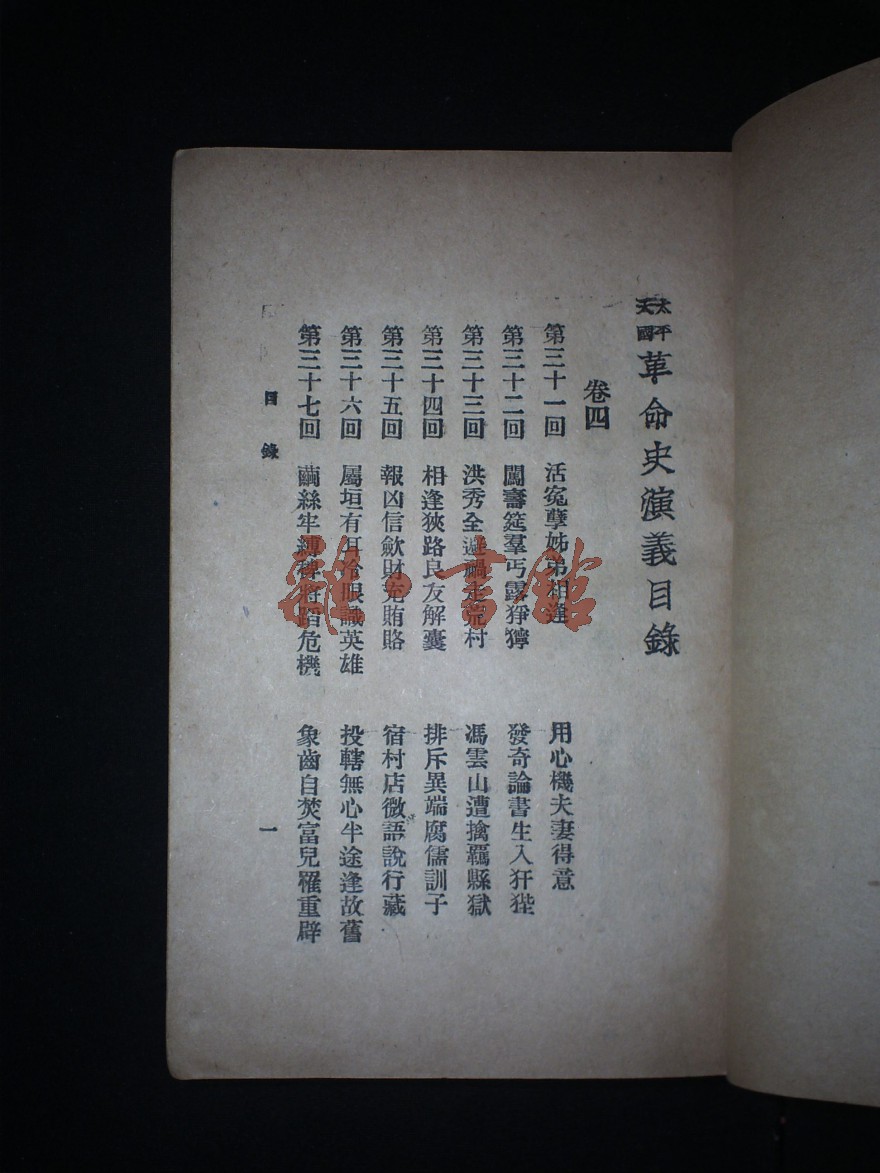 太平天國革命史演義目錄
卷四
第三十一回 活冤孽姊弟相逢 用心機夫妻得意
第三十二回 闖壽筵羣丐露猙獰 發奇論書生入犴狴
第三十三回 洪秀全避禍走荒村 馮雲山遭擒羈縣獄
第三十四回 相逢狹路良友解囊 排斥異端腐儒訓子
第三十五回 報凶信歛財充賄賂 宿村店微語說行藏
第三十六回 屬垣有耳冷眼識英雄 投轄無心半途逢故舊
第三十七回 繭絲牢縛 將蹈危機 象齒自焚富兒罹重辟
目錄
一
雜·書館